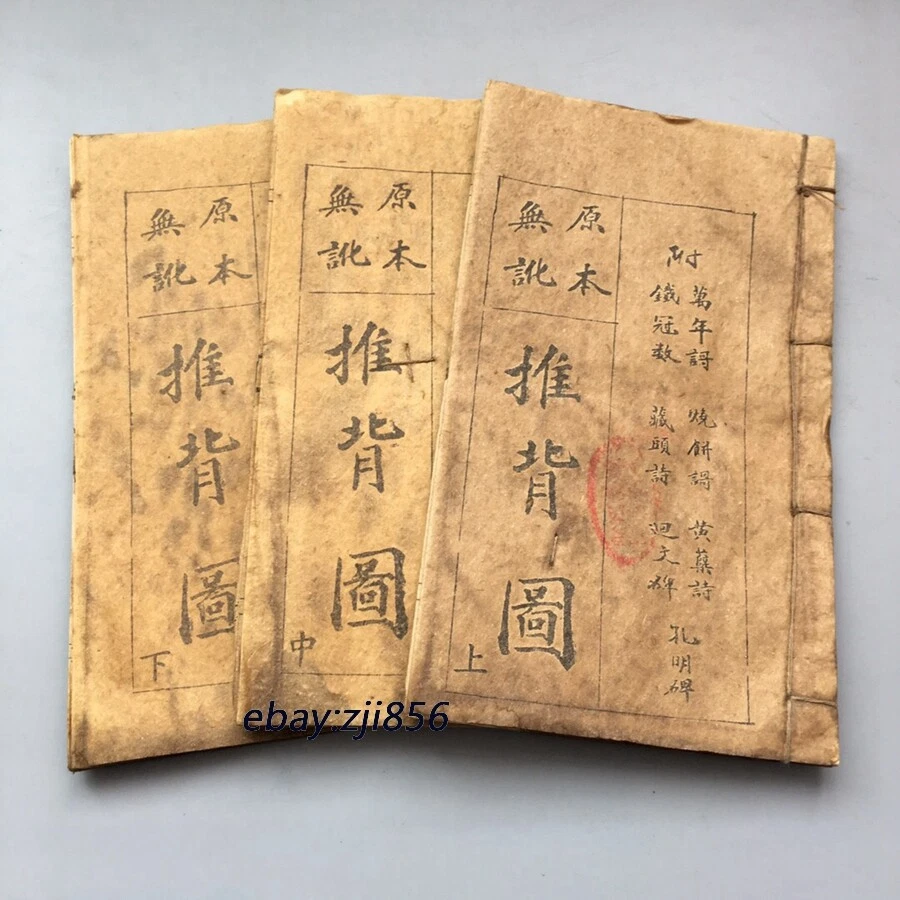 附
萬年謌 燒餅謌 黄蘗詩 孔明碑
鐵冠数 藏頭詩 迴文碑
原本
無訛
推背圖
上
原本
無訛
推背圖
中
原本
無訛
推背圖
下
ebay:zji856